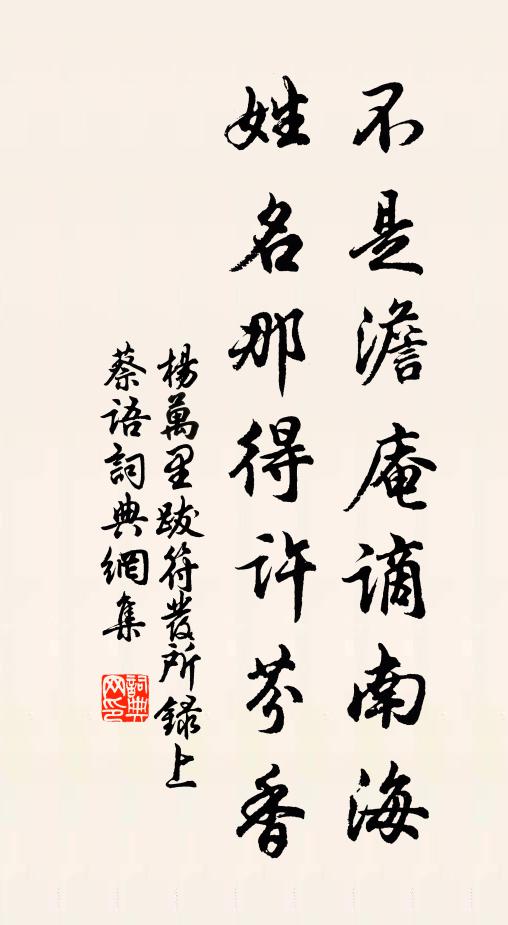 不是澹庵謫南海
姓名那得許芬香
楊萬里跋符發所録上
蔡語詞典網集
詞典
网印